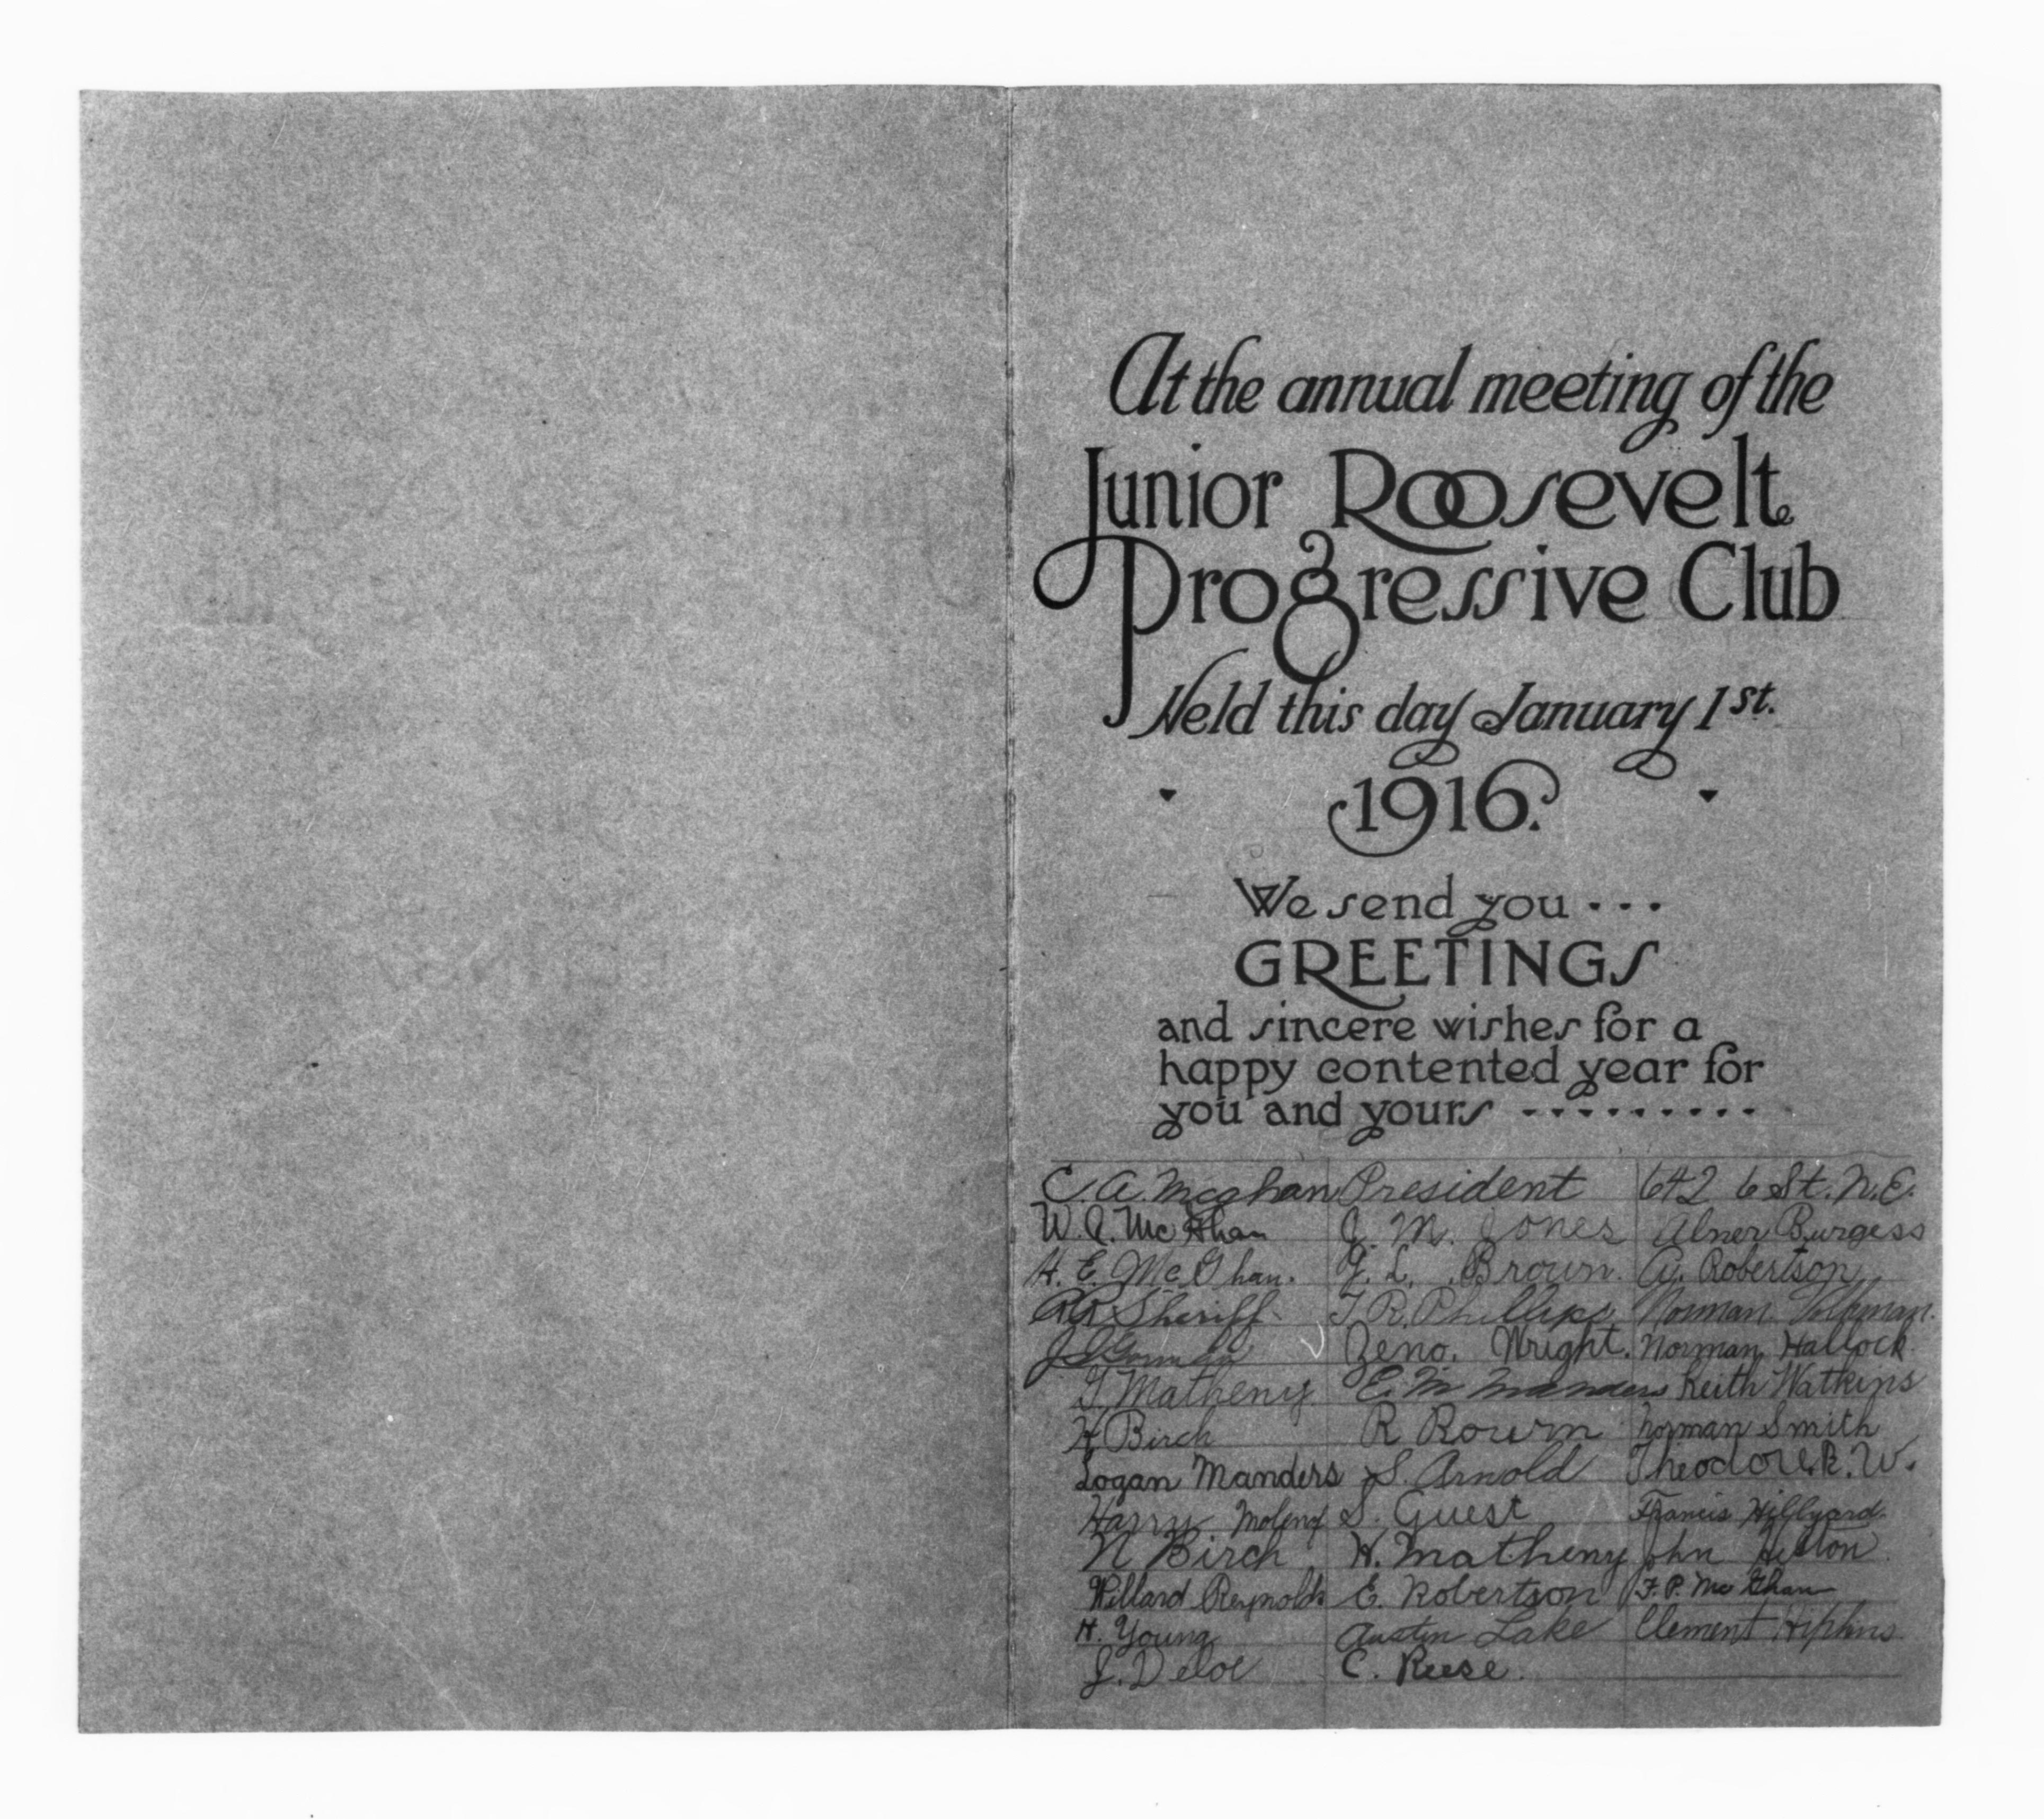 At the annual meeting of the
Junior Roosevelt
Progressive Club
Held this day January 1st.
1916.
We send you ...
GREETINGS
and sincere wishes for a
happy contented year for
you and yours .........
C. A. McGhan President 642 6 St. N.E.
W. A. McGhan J. M. Jones Abner Burgess
H. E. McGhan. G. L. Brown. A. Robertson
Sheriff T. R. Phillips Norman
Zeno. Wright. Norman Hallock
Matheny E. M. Manders Keith Watkins
H Birch R Rourn Norman Smith
Logan Manders S. Arnold Theodore R. W.
Harry S. Guest Francis Hillyard
N Birch H. Matheny John
Willard Reynolds E. Robertson F. P. McGhan
H. Young Austin Lake Clement Hipkins
J. Deloe C. Reese.